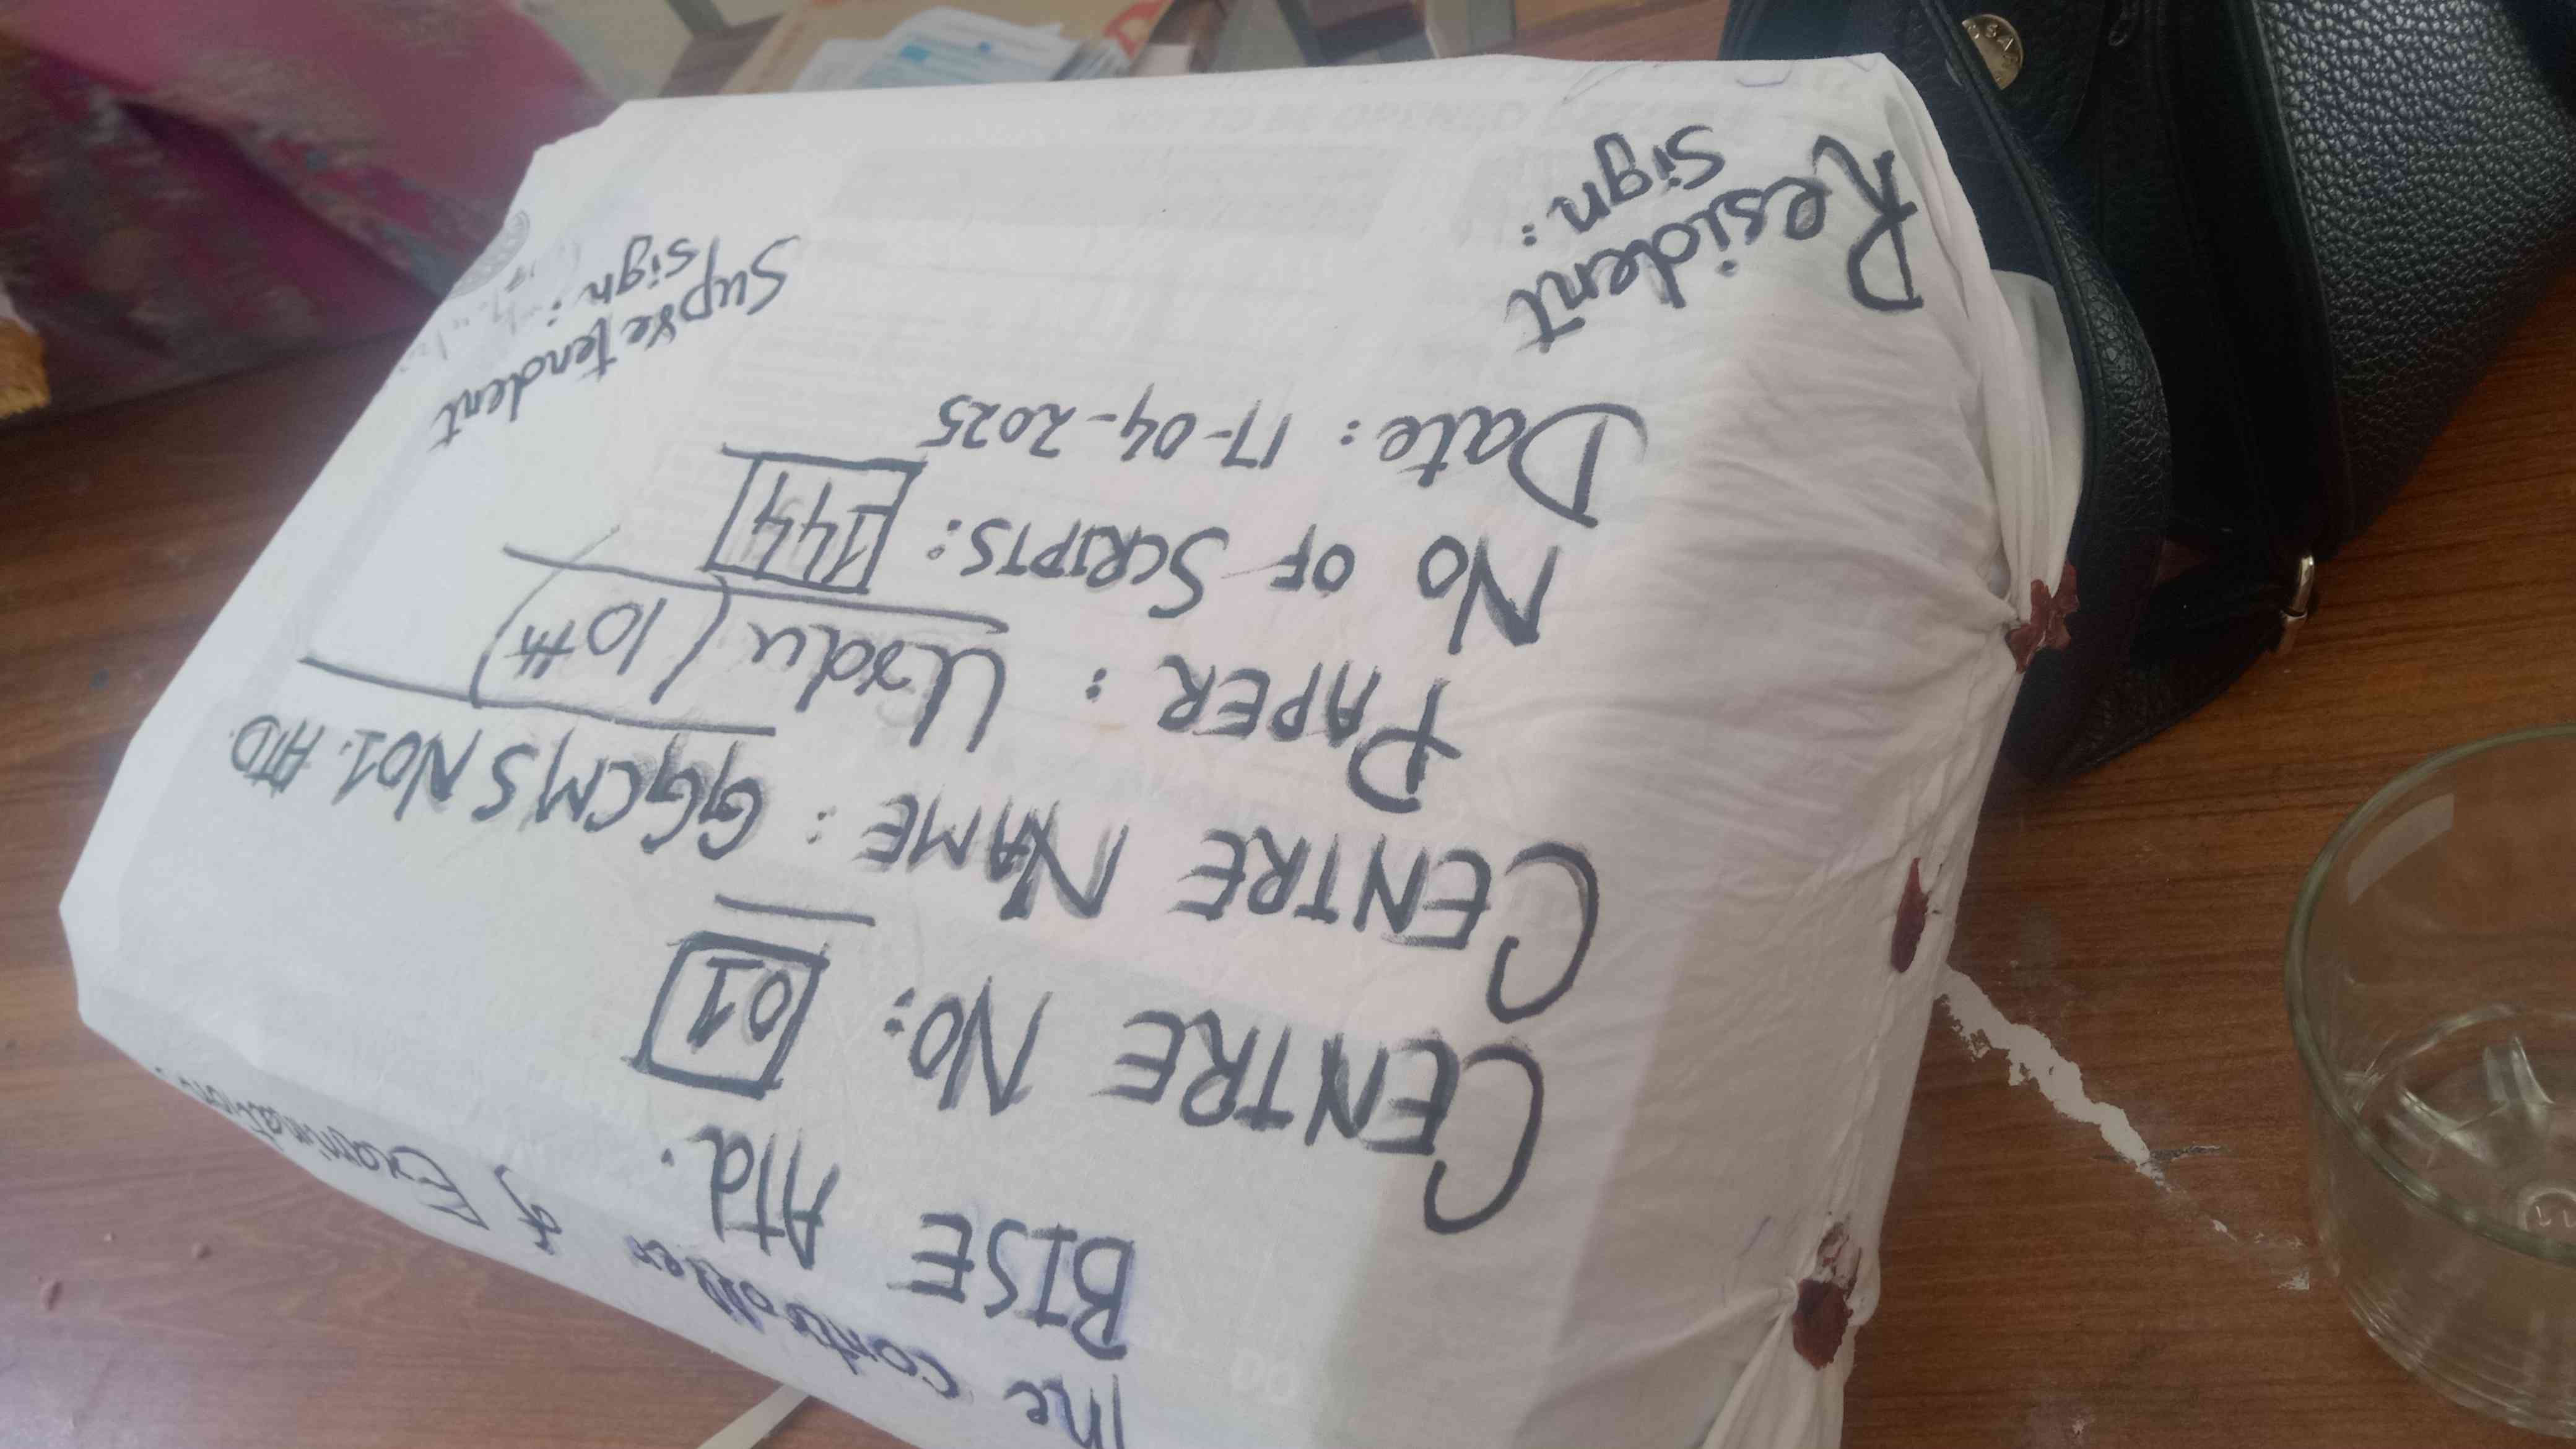 The controller of Examination
BISE ATd.
CENTRE NO: 01
CENTRE NAME: GGCMS NO1. ATD.
PAPER: Urdu (10th)
NO OF SCRIPTS: 144
Date: 17-04-2025
Resident
Sign:
Supretendent
Sign: